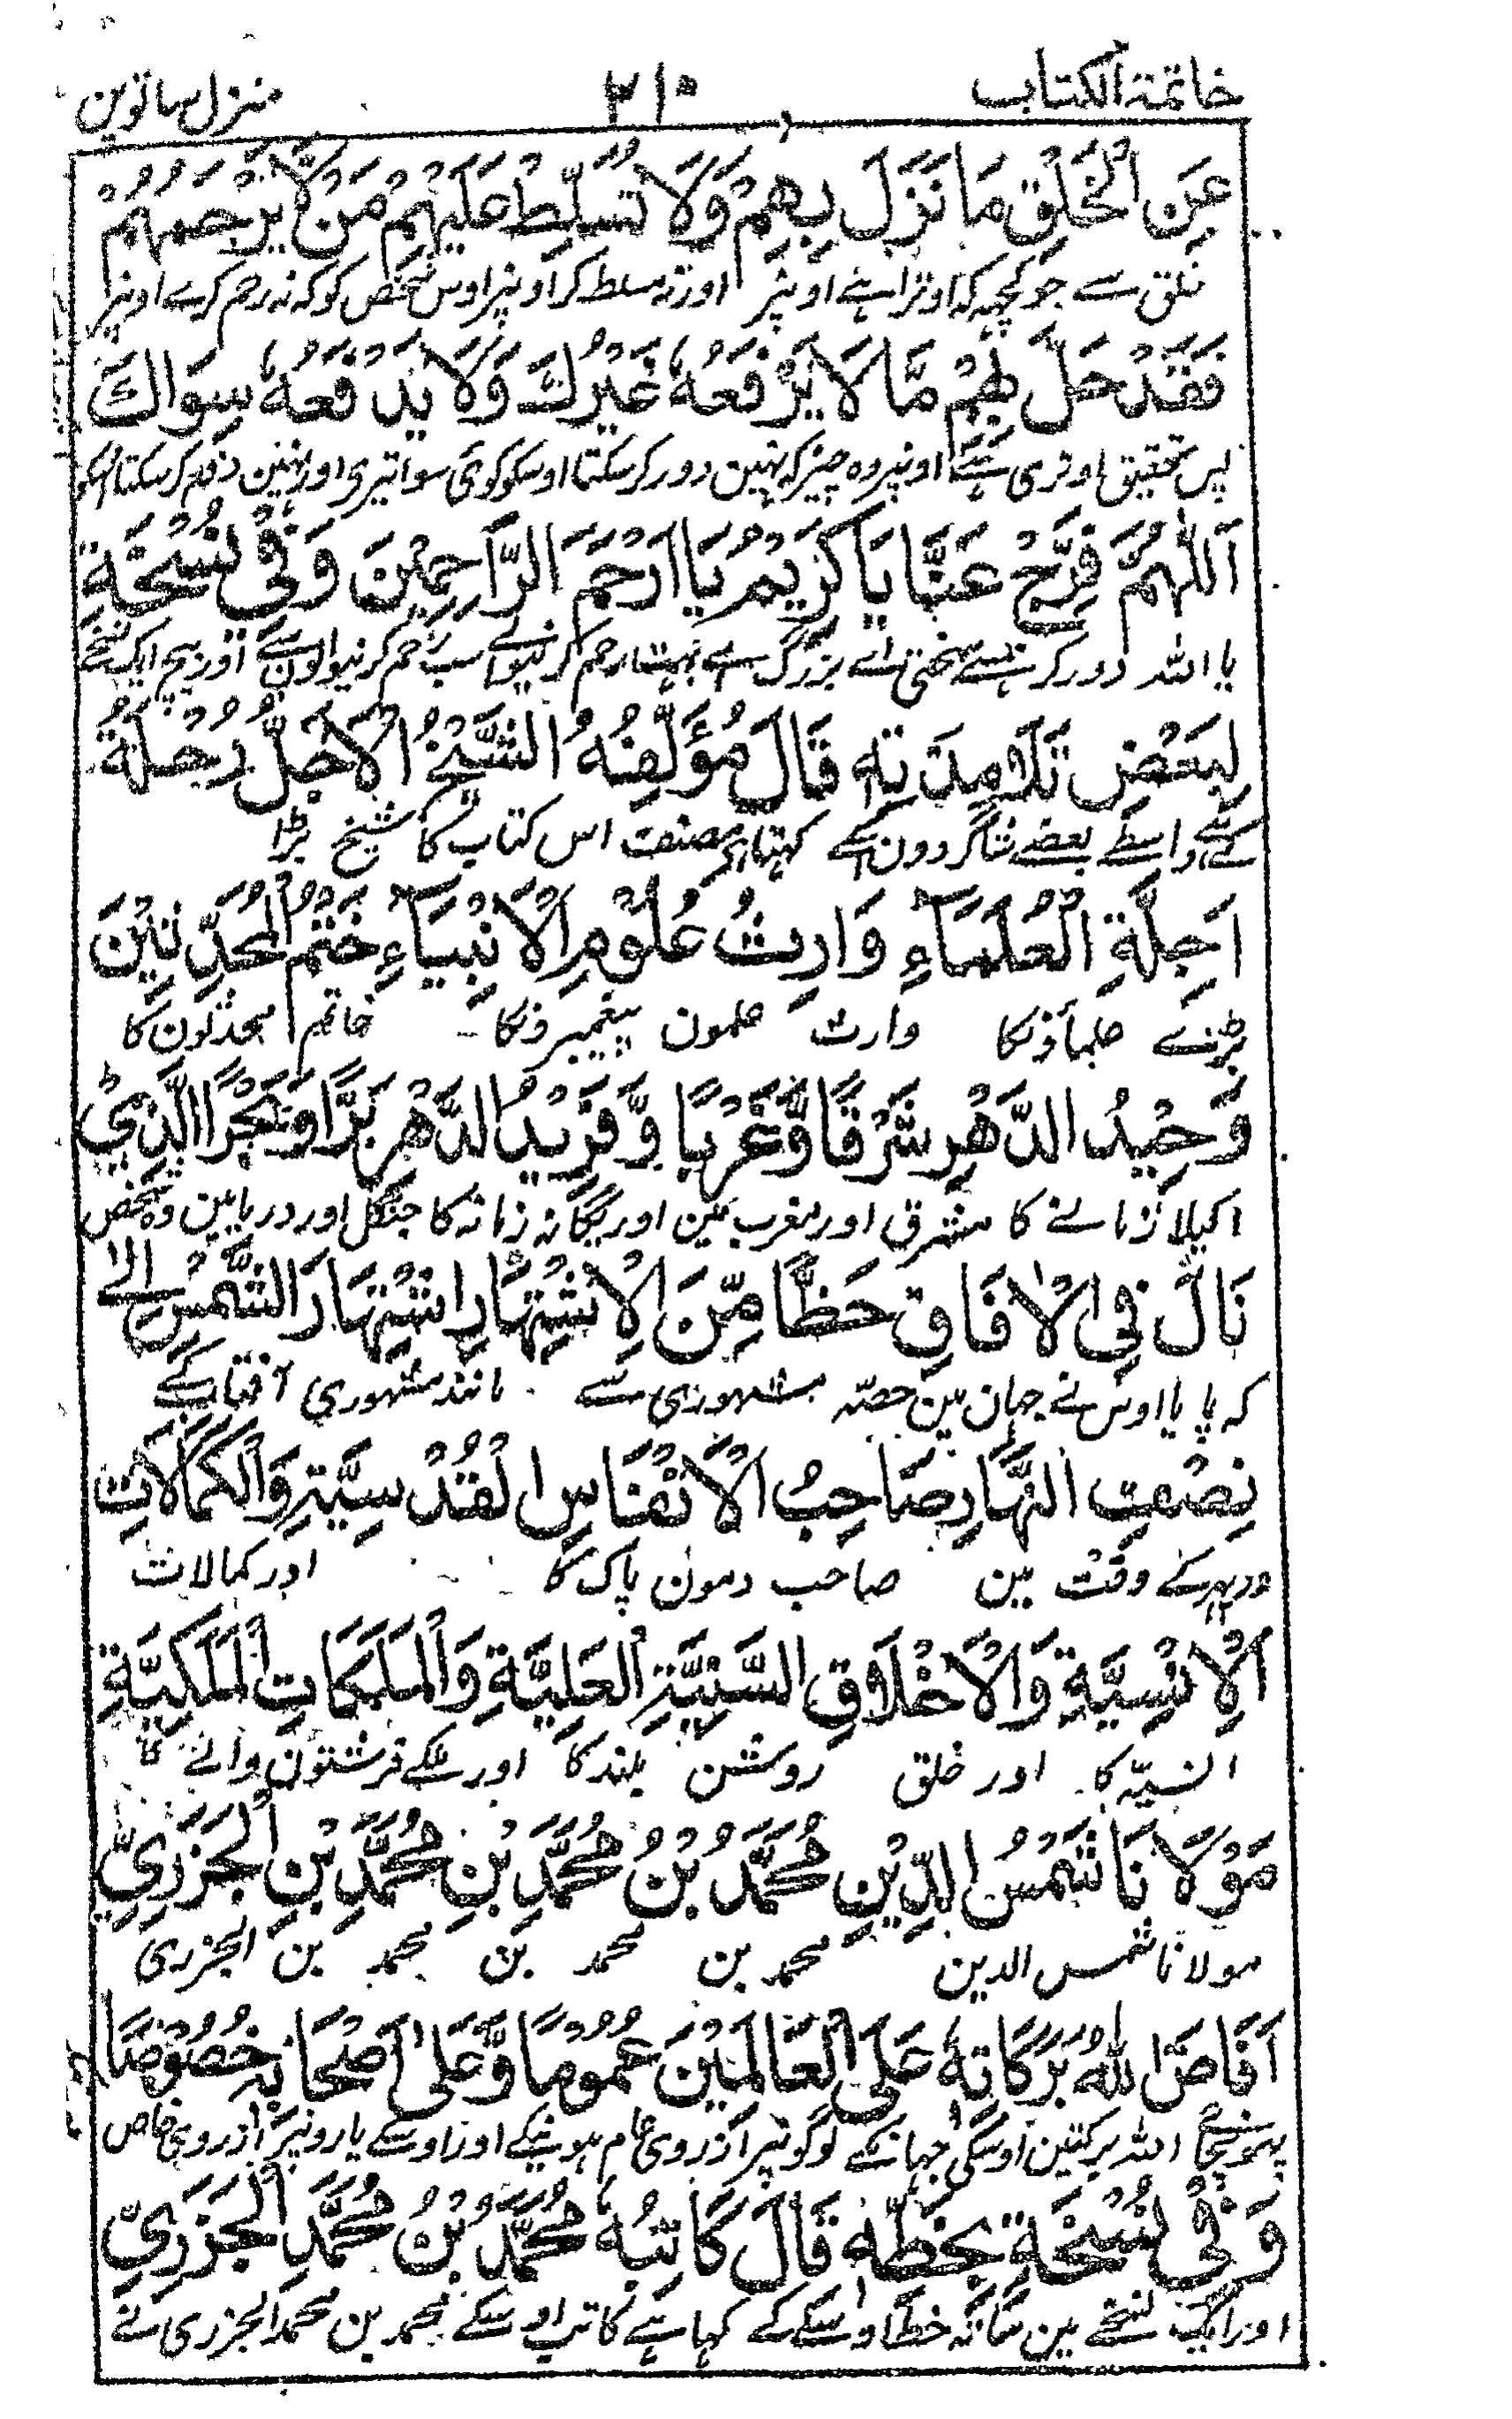 خاتمۃ الکتاب ۲۱۰ منزل ساتوین
عَنِ الْخَلْقِ مَا نَزَلَ بِهِمْ وَلَا تُسَلِّطْ عَلَيْهِمْ مَنْ لَّا يَرْحَمُهُمْ
خلق سے جو کچھہ کہ اوترا ہے اونپر اور نہ مسلط کر اونپر اوس شخص کو کہ نہ رحم کرے اونپر
فَقَدْ حَلَّ بِهِمْ مَّا لَا يَرْفَعُهٗ غَيْرُكَ وَلَا يَدْفَعُهٗ سِوَاكَ
پس تحقیق اوتری ہے اونپر وہ چیز کہ نہین دور کر سکتا اوسکو کوئی سوا تیری اور نہین دفع کر سکتا
اَللّٰهُمَّ فَرِّجْ عَنَّا يَا كَرِيْمُ يَا اَرْحَمَ الرَّاحِمِيْنَ وَفِيْ نُسْخَةٍ
یا اللہ دور کر ہمسے سختی اے بزرگ اے بہت رحم کرنیوالے سب رحم کرنیوالون سے اور بیچ ایک نسخے
لِبَعْضِ تَلَامِذَتِهٖ قَالَ مُؤَلِّفُهُ الشَّيْخُ الْاَجَلُّ رُحْلَةُ
کے واسطے بعضے شاگردون اسکے کہتا ہے مصنف اس کتاب کا شیخ بڑا
اَجِلَّةِ الْعُلَمَاءِ وَارِثُ عُلُوْمِ الْاَنْبِيَاءِ خَتْمُ الْمُحَدِّثِيْنَ
بڑے علماؤنکا وارث علمون پیغمبرونکا خاتم محدثون کا
وَحِيْدُ الدَّهْرِ شَرْقًا وَّغَرْبًا وَّفَرِيْدُ الدَّهْرِ بَرًّا وَبَحْرًا الَّذِيْ
اکیلا زمانے کا مشرق اور مغرب مین اور یگانہ زمانہ کا جنگل اور دریا مین وہ شخص
نَالَ فِي الْاٰفَاقِ حَظًّا مِّنَ الْاِشْتِهَارِ اشْتِهَارَ الشَّمْسِ اِلٰے
کہ پایا اوس نے جہان مین حصّہ مشہوری سے مانند مشہوری آفتاب کے
نِصْفِ النَّهَارِ صَاحِبُ الْاَنْفَاسِ الْقُدْسِيَّةِ وَالْكَمَالَاتِ
دوپہر کے وقت مین صاحب دمون پاک کا اور کمالات
الْاِنْسِيَّةِ وَالْاَخْلَاقِ السَّنِيَّةِ الْعَلِيَّةِ وَالْمَلَكَاتِ الْمَلَكِيَّةِ
انسیّہ کا اور خلق روشن بلند کا اور ملکے فرشتون والے کا
مَوْلَانَا شَمْسُ الدِّيْنِ مُحَمَّدُ بْنُ مُحَمَّدِ بْنِ مُحَمَّدِ بْنِ الْجَزَرِيِّ
مولانا شمس الدین محمد بن محمد بن محمد بن الجزری
اَفَاضَ اللّٰهُ بَرَكَاتِهٖ عَلَى الْعَالَمِيْنَ عُمُوْمًا وَّعَلٰى اَصْحَابِهٖ خُصُوْصًا
پہونچائے اللہ برکتین اوسکی جہانکے لوگونپر از روی عام ہونیکے اور اوسکے یارونپر از روی خاص
وَفِيْ نُسْخَةٍ بِخَطِّهٖ قَالَ كَاتِبُهٗ مُحَمَّدُ بْنُ مُحَمَّدِ الْجَزَرِيِّ
اور ایک نسخے مین ساتہ خط اوسکے کے کہا ہے کاتب اوسکے محمد بن محمد الجزری نے